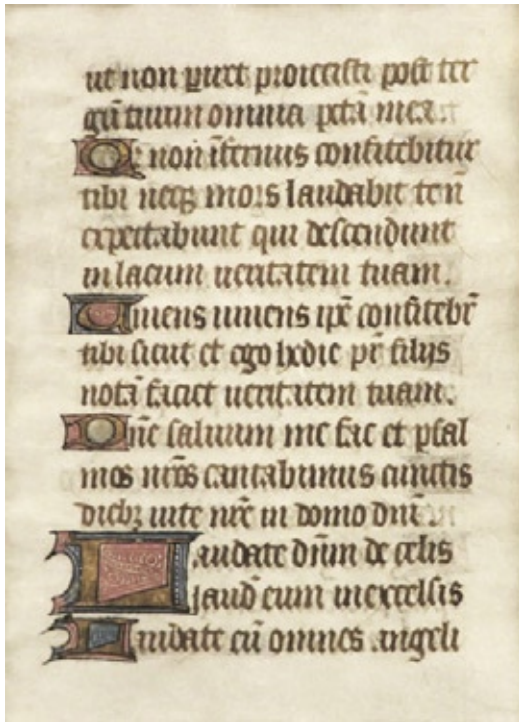 ut non piret proiecisti post ter
gū tuum omnia pctā mea.
Qr non ifernus confitebitur
tibi neqꝫ mors laudabit te nō
expectabunt qui descendunt
in lacum ueritatem tuam.
Viuens uiuens ipē confitebr̄
tibi sicut et ego hodie pr̄ filijs
notā faciet ueritatem tuam.
Dn̄e saluum me fac et psal
mos nr̄os cantabimus cunctis
diebꝫ uite nr̄e in domo dn̄i.
Laudate dn̄m de celis
laud̄ eum in excelsis
Laudate eū omnes angeli